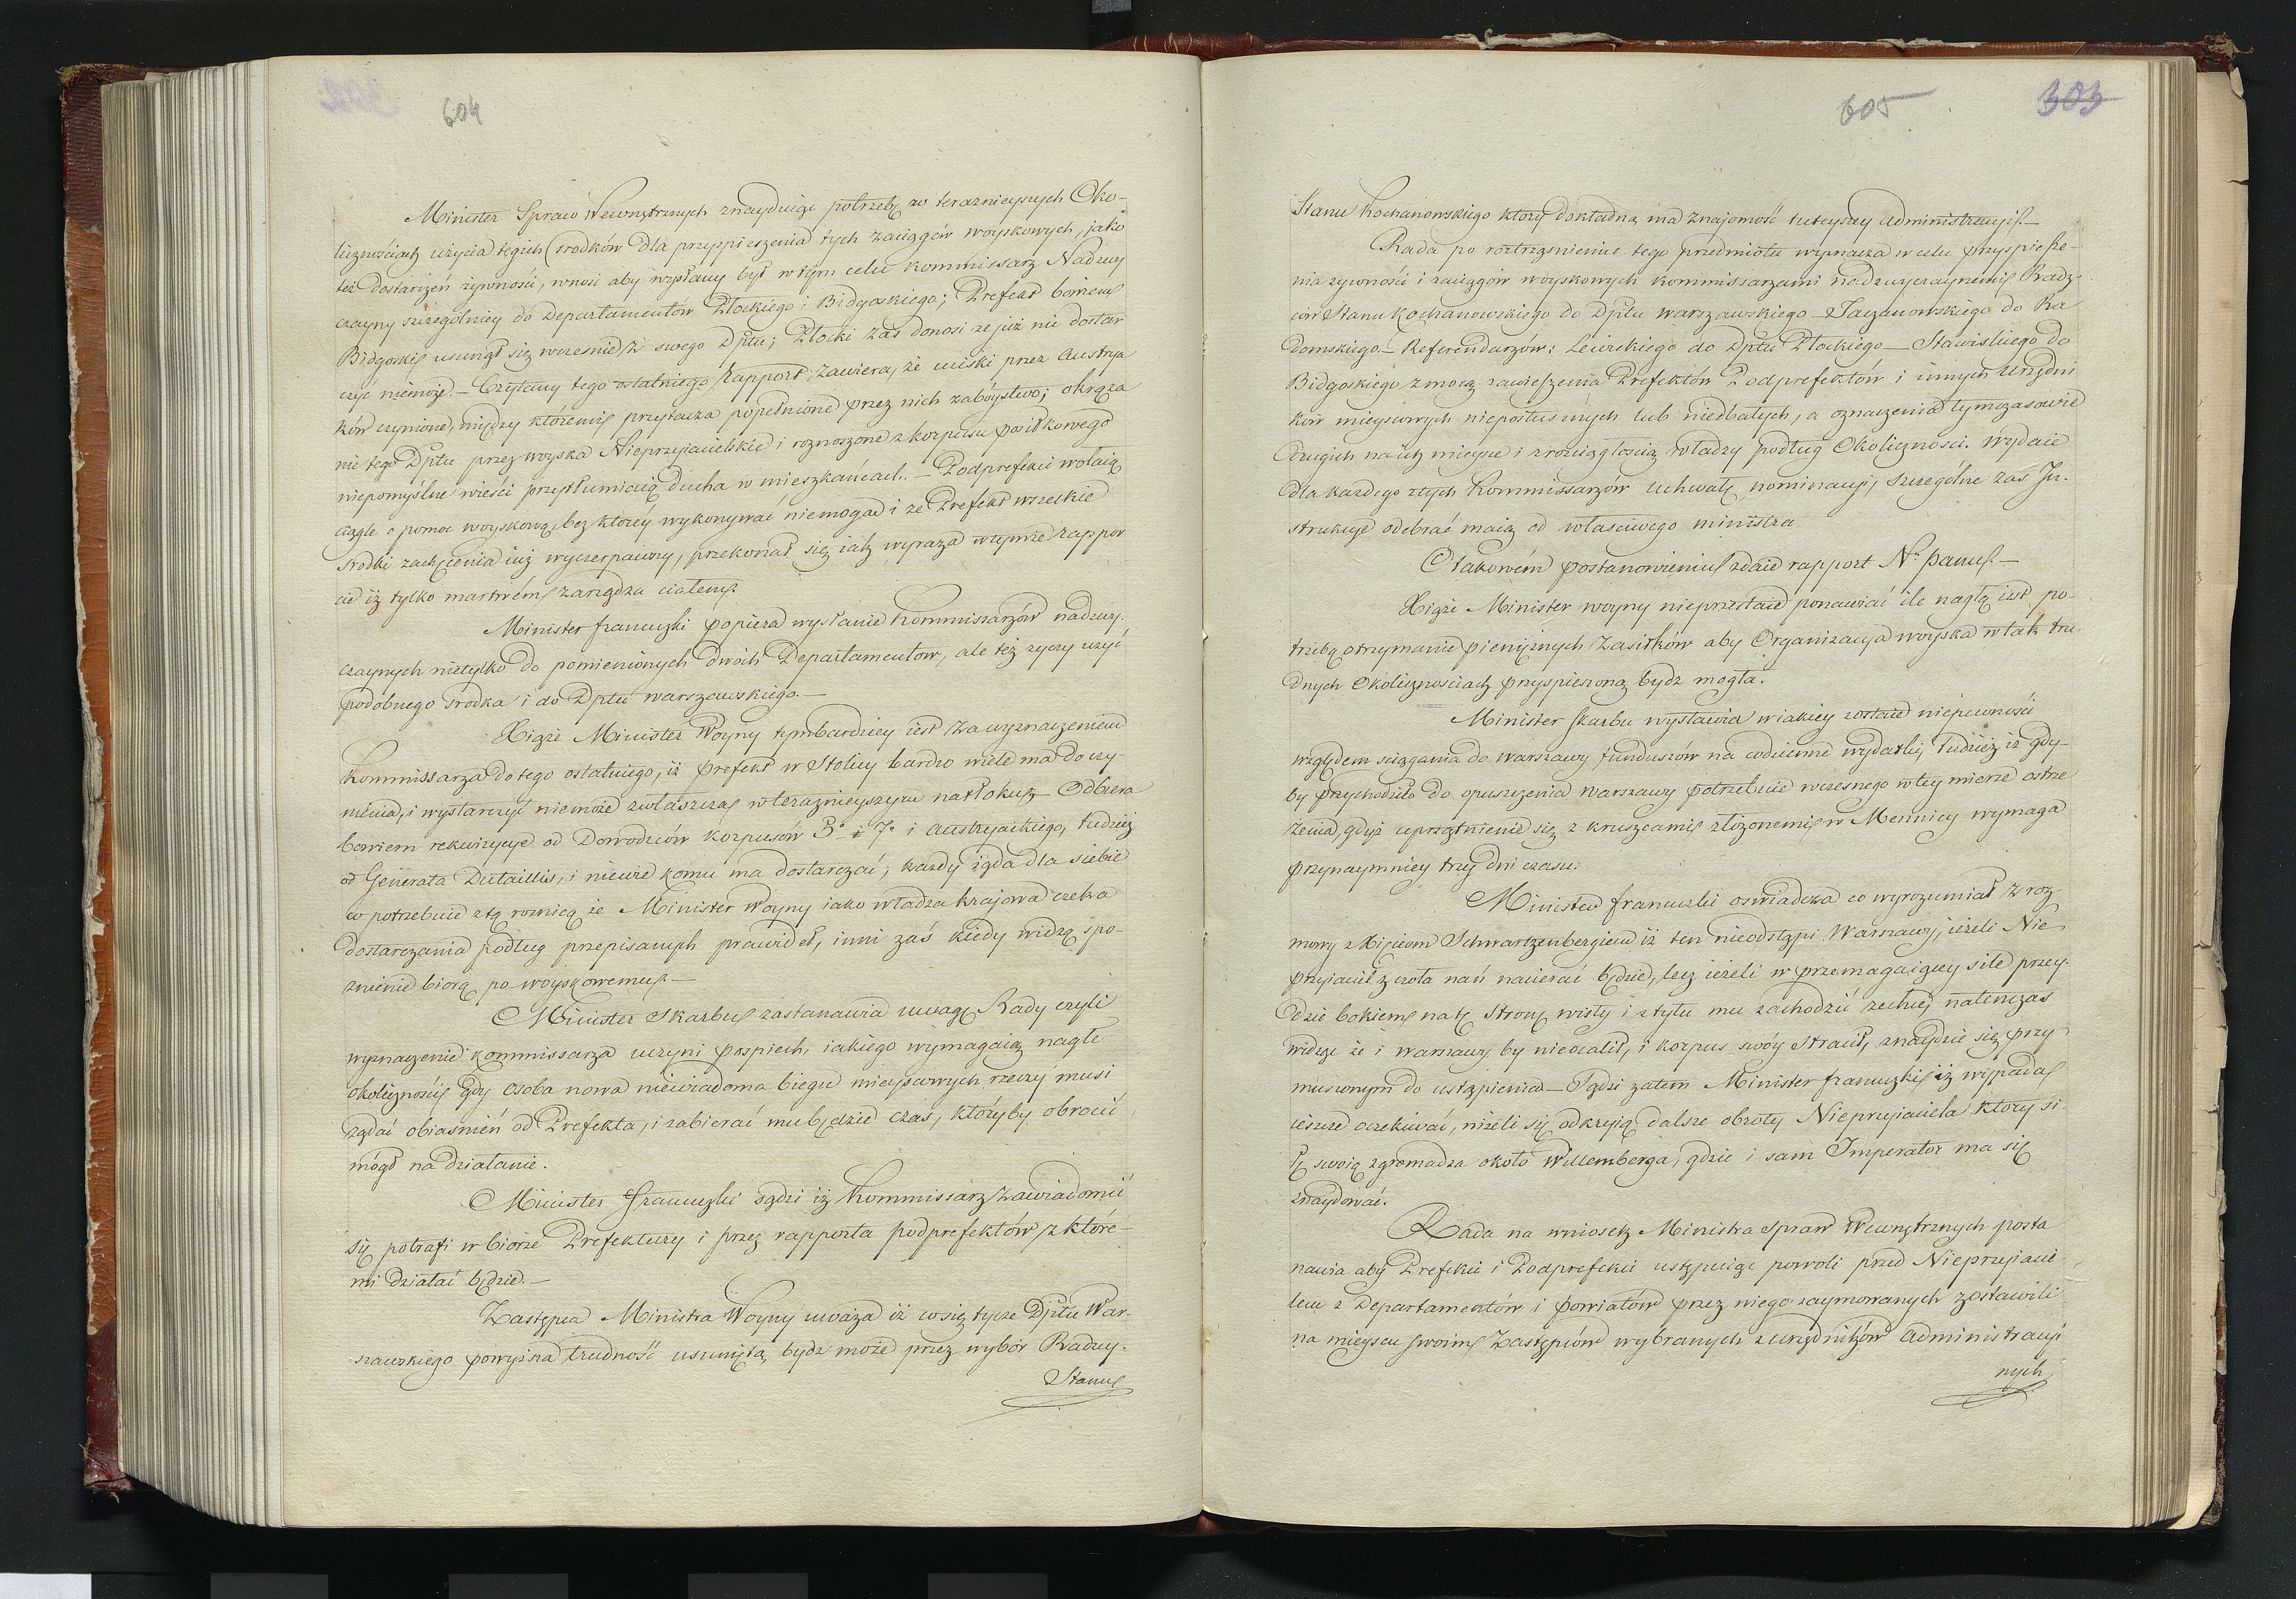 604
Minister Spraw Wewnętrznych znayduiąc potrzebę w teraznieyszych Oko-
licznościach użycia tęgich srodków dla przyspieszenia tych zaciągów woyskowych, jako
też dostarczeń żywności, wnosi aby wysłany był w tym celu Kommissarz Nadzwy
czayny szczególniey do Departamentów Płockiego i Bidgoskiego; Prefekt bowiem
Bidgoski usunął się wcześnie z swego Dptu; Płocki zaś donosi że już nie dostar
czyć niemoże. – Czytany tego ostatniego Rapport zawiera, że uciski przez Austrya
ków czynione, między któremi przytacza popełnione przez nich zabóystwo; okrąże
nie tego Dptu przez woyska Nieprzyiacielskie i roznoszone z korpusu posiłkowego
niepomyślne wieści przytłumiaią ducha w mieszkańcach. – Podprefekci wołaią
ciągle o pomoc woyskową, bez któréy wykonywać niemogą i że Prefekt wszelkie
srodki zachęcenia iuż wyczerpawszy, przekonał się iak wyraża w tymże rappor
cie iż tylko martwém zarządza ciałem.
Minister francuzki popiera wysłanie Kommissarzów nadzwy-
czaynych nietylko do pomienionych dwóch Departamentów, ale też życzy użyć
podobnego srodka i do Dptu warszawskiego. –
Xiąże Minister Woyny tymbardziey iest za wyznaczeniem
Kommissarza do tego ostatniego, iż Prefekt w Stolicy bardzo wiele ma do czy-
nienia, i wystarczyć niemoże zwłaszcza w teraznieyszym natłoku – Odbiera
bowiem rekwizycye od Dowodzców korpusów 5º i 7º i Austryackiego, tudzież
od Generała Dutaillis, i niewie komu ma dostarczać; każdy żąda dla siebie
co potrzebuie z tą rożnicą że Minister Woyny iako władza krajowa czeka
dostarczania podług przepisanych prawideł, inni zaś kiedy widzą spo-
znienie biorą po woyskowemu. –
Minister Skarbu zastanawia uwagę Rady czyli
wyznaczenie kommissarza uczyni pospiech, iakiego wymagaią nagłe
okoliczności gdy osoba nowa niewiadoma biegu mieyscowych rzeczy musi
żądać obiaśnień od Prefekta, i zabierać mu będzie czas, któryby obrocić
mógł na działanie.
Minister francuzki sądzi iż Kommissarz zawiadomić
się potrafi w biorze Prefektury i przez rapporta podprefektów z które-
mi działać będzie. –
Zastępca Ministra Woyny uważa iż co się tycze Dptu War-
szawskiego powyższa trudność usuniętą bydz może przez wybór Radzcy
Stanu
605
303
Stanu Kochanowskiego który dokładną ma znajomość tuteyszey administracyi. –
Rada po roztrząsnieniu tego przedmiotu wyznacza w celu przyspiesze-
nia żywności i zaciągów woyskowych kommissarzami nadzwyczaynemi Radz-
ców Stanu Kochanowskiego do Dptu warszawskiego – Taczanowskiego do Ra
domskiego – Referendarzów: Lewickiego do Dptu Płockiego – Stawiskiego do
Bidgoskiego z mocą zawieszenia Prefektów Podprefektów i innych Urzędni
ków mieyscowych nieposłusznych lub niedbałych, a oznaczenia tymczasowie
drugich na ich mieysce i z rozciągłością władzy podług Okoliczności. Wydaie
dla każdego z tych Kommissarzów uchwałę nominacyi, szczególne zaś In-
strukcye odebrać maią od własciwego ministra
O takowém postanowieniu zdaie rapport N: Panu. –
Xiąże Minister woyny nieprzestaie ponawiać ile nagłą iest po-
trzebą otrzymanie pieniężnych zasiłków aby Organizacya woyska w tak tru-
dnych Okolicznościach przyspieszoną bydz mogła.
Minister Skarbu wystawia w iakiey zostaie niepewności
względem sciągania do Warszawy funduszów na codzienne wydatki, tudzież iż gdy-
by przychodziło do opuszczenia Warszawy potrzebuie wczesnego w tey mierze ostrze
żenia, gdyż uprzątnienie się z kruszcami złożonemi w Mennicy wymaga
przynaymniey trzy dni czasu.
Minister francuzki oswiadcza co wyrozumiał z roz-
mowy z Xięciem Schwartzenbergiem iż ten nieodstąpi Warszawy, ieżeli Nie
przyiaciel z czoła nań nacierać będzie, lecz ieżeli w przemagaiącey sile przey-
dzie bokiem na tę stronę wisły i z tyłu mu zachodzić zechce, natenczas
widząc że i warszawy by nieocalił, i korpus swóy stracił, znaydzie się przy
muszonym do ustąpienia – Sądzi zatem Minister francuzki iż wypada
ieszcze oczekiwać, nizeli się odkryią dalsze obroty Nieprzyiaciela który si-
łę swoią zgromadza około Willemberga, gdzie i sam Imperator ma się
znaydować.
Rada na wniosek Ministra Spraw Wewnętrznych posta
nawia aby Prefekci i Podprefekci ustępuiąc powoli przed Nieprzyiacie
lem z Departamentów i powiatów przez niego zaymowanych zostawili
na mieyscu swoim Zastępców wybranych z urzędników administracyi
nych